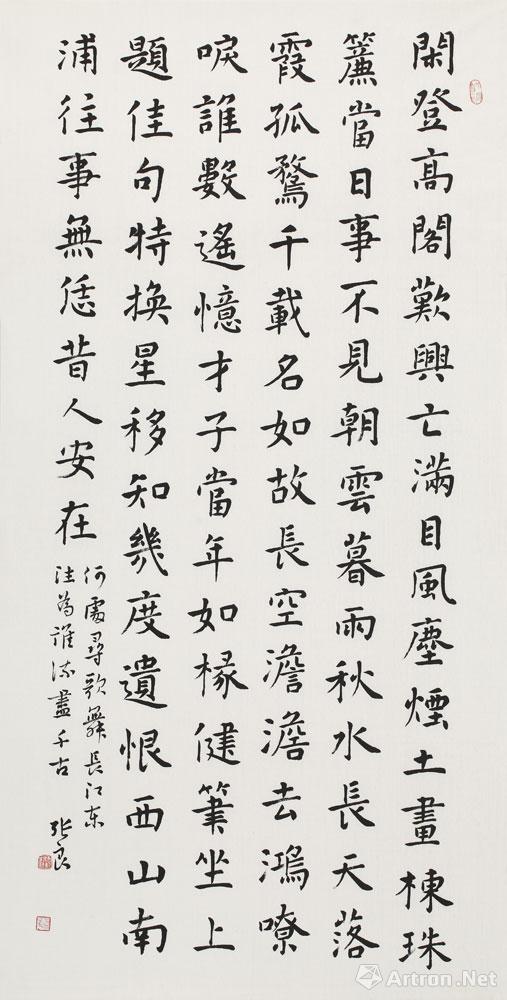 閑登高閣歎興亡滿目風塵煙土畫棟珠
簾當日事不見朝雲暮雨秋水長天落
霞孤鶩千載名如故長空澹澹去鴻嘹
唳誰數遙憶才子當年如椽健筆坐上
題佳句特換星移知幾度遺恨西山南
浦往事無恙昔人安在
何處尋歌舞長江東
注為誰流盡千古 張良
Artron.Net